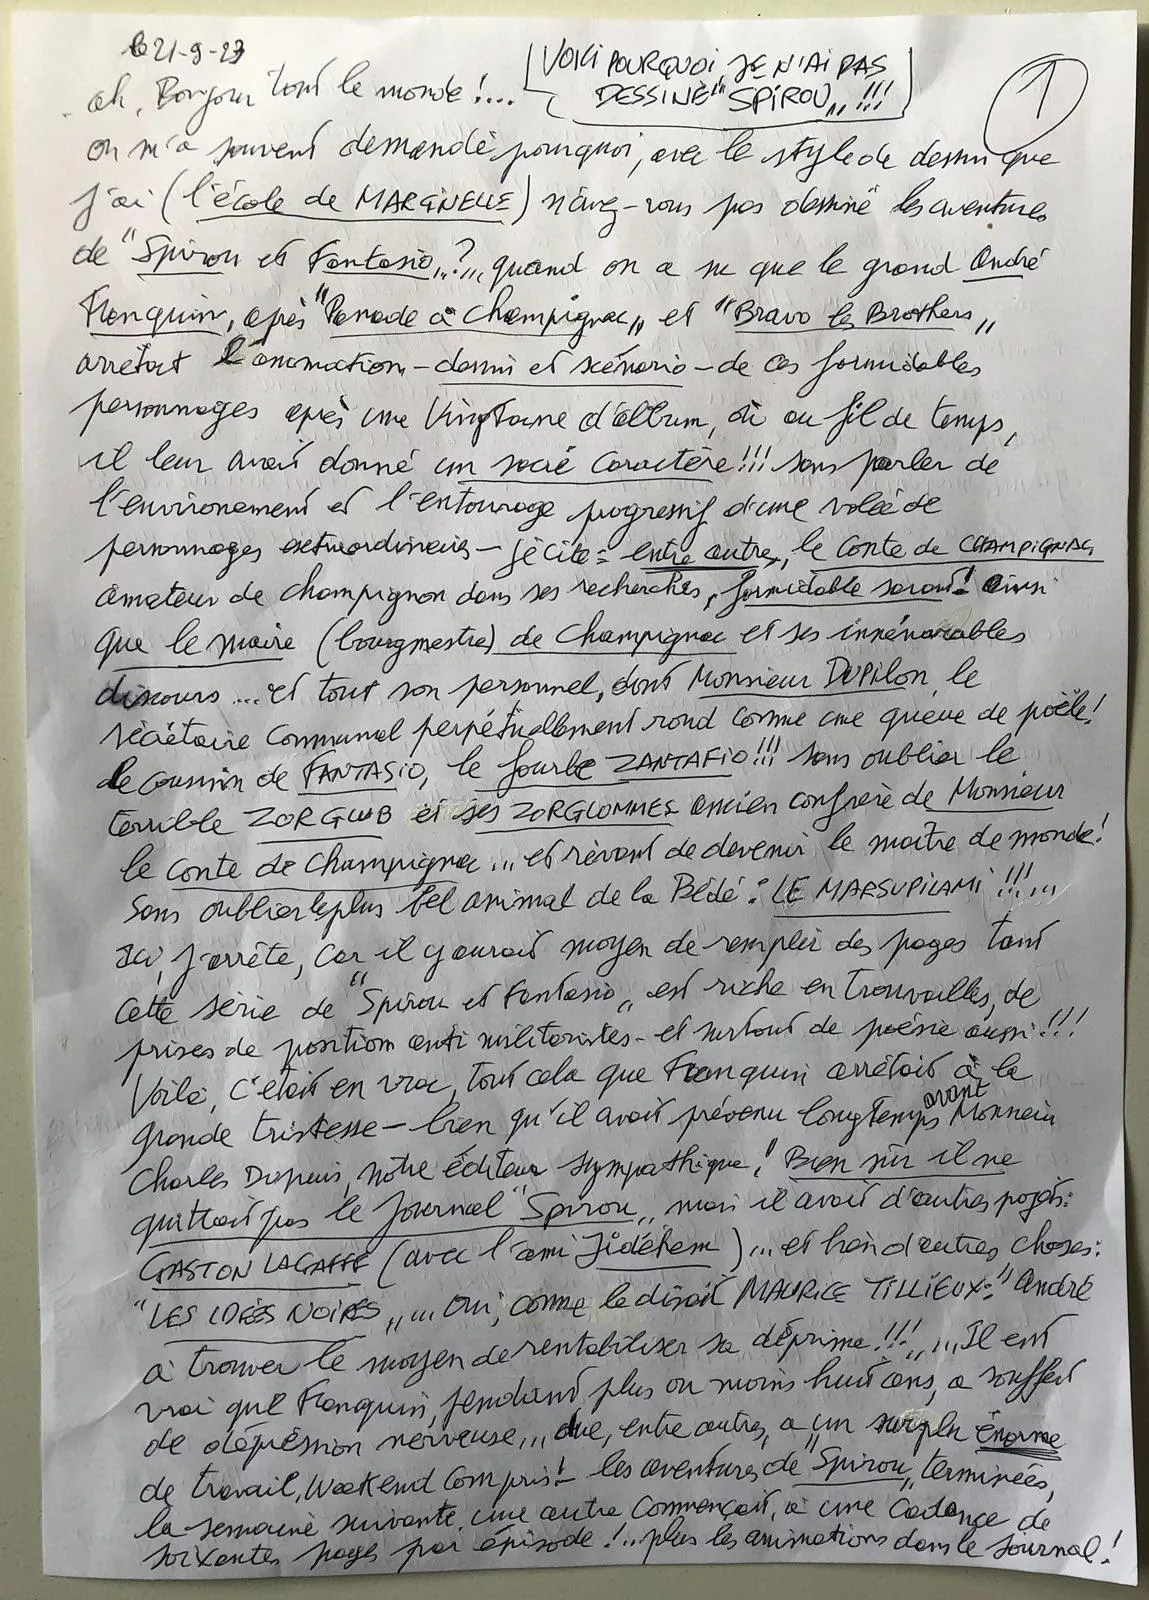 le 21-9-23
VOICI POURQUOI JE N'AI PAS
DESSINÉ "SPIROU,, !!!
1
ah, Bonjour tout le monde !....
on m'a souvent demandé pourquoi, avec le style de dessin que
j'ai (l'école de MARCINELLE) n'avez-vous pas dessiné les aventures
de "Spirou et Fantasio,,?,,, quand on a su que le grand André
Franquin, après "Panade à Champignac,, et "Bravo les Brothers,,
arrêtait l'animation - dessin et scénario - de ces formidables
personnages après une Vingtaine d'album, où au fil de temps,
il leur avait donné un sacré Caractère!!! sans parler de
l'environement et l'entourage progressif d'une volée de
personnages extraordinaires - je cite = entre autre, le Conte de CHAMPIGNAC
amateur de champignon dans ses recherches, formidable savant! ainsi
que le maire (bourgmestre) de Champignac et ses innénarables
discours ... et tout son personnel, dont Monsieur DUPILON, le
sécrétaire Communal perpétuellement rond comme une queue de poële!
le cousin de FANTASIO, le fourbe ZANTAFIO!!! sans oublier le
terrible ZORGLUB et ses ZORGLOMMES ancien confrère de Monsieur
le Conte de Champignac ... et rêvant de devenir le maitre de monde!
Sans oublier le plus bel animal de la Bédé : LE MARSUPILAMI !!!....
Ici, j'arrête, Car il y aurait moyen de remplir des pages tant
Cette série de "Spirou et Fantasio,, est riche en trouvailles, de
prises de position anti militaristes - et surtout de poésie aussi !!!
Voilà, c'était en vrac, tout cela que Franquin arrêtait à la
grande tristesse - bien qu'il avait prévenu longtemps avant Monsieur
Charles Dupuis, nôtre éditeur sympathique! Bien sûr il ne
quittait pas le Journal "Spirou,, mais il avait d'autres projets:
GASTON LAGAFFE (avec l'ami Jidéhem)... et bien d'autres choses:
"LES IDÉES NOIRES,, ... Oui, comme le disait MAURICE TILLIEUX: "André
à trouver le moyen de rentabiliser sa déprime !!!,, ... Il est
vrai que Franquin, pendant plus ou moins huit ans, a souffert
de dépression nerveuse,,, due, entre autre, a un surplu énorme
de travail, Weekend Compris! les aventures de "Spirou,, terminées,
la semaine suivante, une autre Commençait, à une Cadance de
soixantes pages par épisode !.. plus les animations dans le Journal!